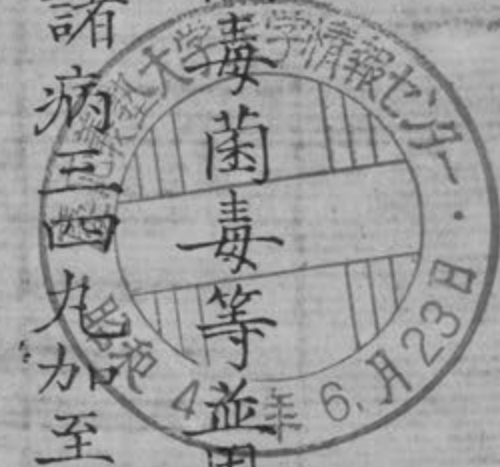 毒菌毒等並
諸病三四九加至
大学 学情報センター
昭和4 年6.月23日